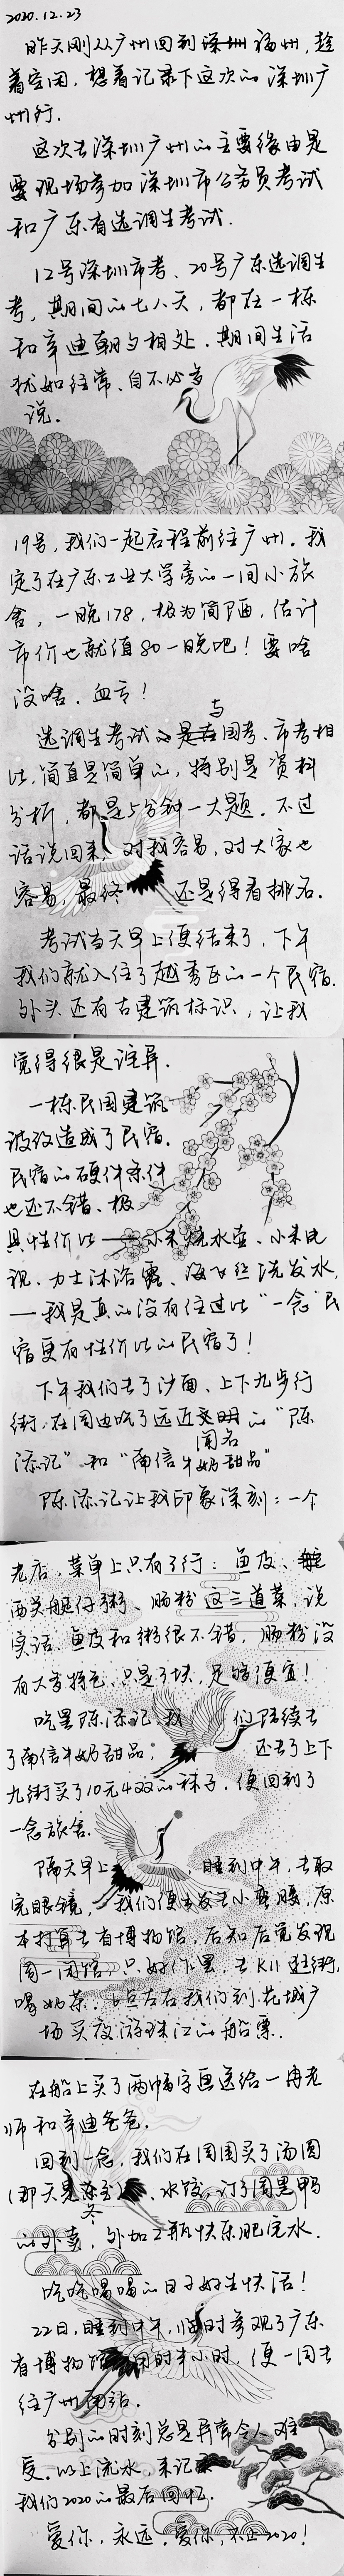 2020.12.23
昨天刚从广州回到深圳福州,趁
着空闲,想着记录下这次的深圳广
州行.
这次去深圳广州的主要缘由是
要现场参加深圳市公务员考试
和广东省选调生考试.
12号深圳市考、20号广东选调生
考,期间的七八天,都在一栋
和辛迪朝夕相处.期间生活
犹如往常,自不必多
说.
19号,我们一起启程前往广州.我
定了在广东工业大学旁的一间小旅
舍,一晚178,极为简陋,估计
市价也就值80一晚吧!要啥
没啥.血亏!
选调生考试与国考、市考相
比,简直是简单的,特别是资料
分析,都是5分钟一大题.不过
话说回来,对我容易,对大家也
容易,最终还是得看排名.
考试当天早上便结束了,下午
我们就入住了越秀区的一个民宿.
外头还有古建筑标识,让我
觉得很是诧异.
一栋民国建筑
被改造成了民宿.
民宿的硬件条件
也还不错、极
具性价比——小米烧水壶、小米电
视、力士沐浴露、海飞丝洗发水,
——我是真的没有住过比“一念”民
宿更有性价比的民宿了!
下午我们去了沙面、上下九步行
街,在周边吃了远近闻名的“陈
添记”和“南信牛奶甜品”
陈添记让我印象深刻:一个
老店,菜单上只有3行:鱼皮、
西关艇仔粥、肠粉这三道菜,说
实话,鱼皮和粥很不错,肠粉没
有大多特色,只是3块,足够便宜!
吃罢陈添记,我们陆续去
了南信牛奶甜品,还去了上下
九街买了10元4双的袜子.便回到了
一念旅舍.
隔天早上,睡到中午,去取
完眼镜,我们便出发去小蛮腰,原
本打算去省博物馆,后知后觉发现
周一闭馆,只好作罢,去K11逛街,
喝奶茶.6点左右我们到花城广
场买夜游珠江的船票.
在船上买了两幅字画送给一冉老
师和辛迪爸爸.
回到一念,我们在周围买了汤圆
(那天是冬至)、水饺,订了周黑鸭
的外卖,外加2瓶快乐肥宅水.
吃吃喝喝的日子好生快活!
22日,睡到中午,临时参观了广东
省博物馆,用时半小时,便一同去
往广州南站.
分别的时刻总是异常令人难
受.以上流水,来记
我们2020的最后回忆.
爱你,永远.爱你,不止2020!